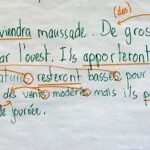 (des)
viendra maussade. De gros
par l'ouest. Ils apporteront
resteront basses pour
dès vents modérés mais ils p
de journée.